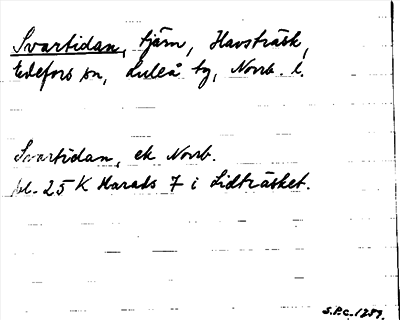 Svartidan, tjärn, Havsträsk,
Edefors sn, Luleå tg, Norrb. l.
Svartidan, ek Norrb.
bl. 25 K Harads 7 i Lidträsket.
S.P.C. 1287.